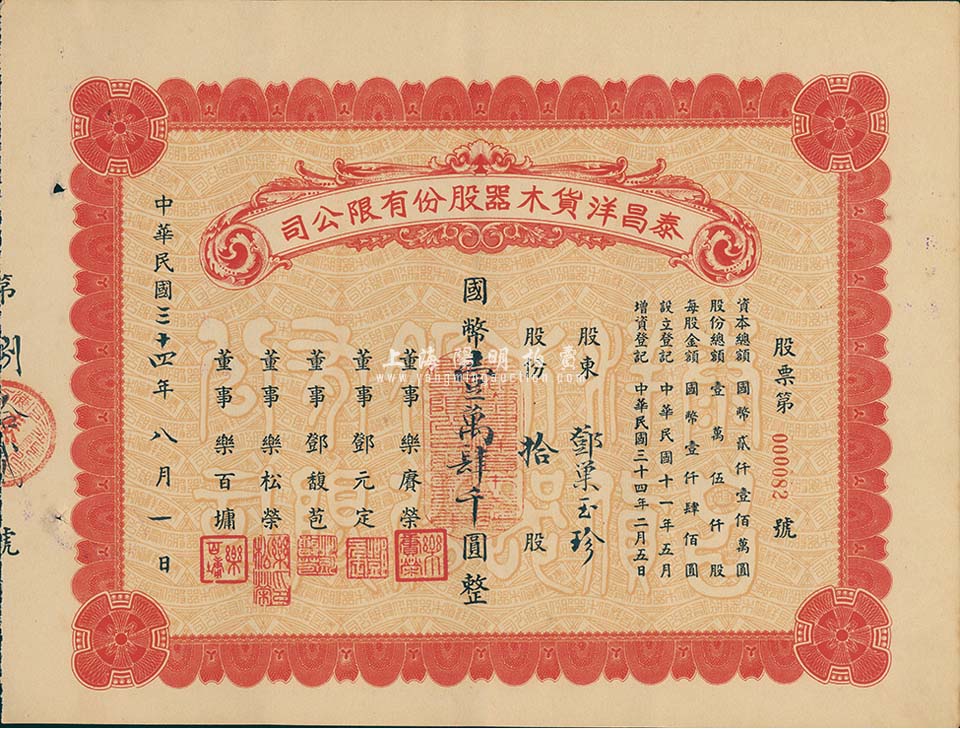 泰昌洋貨木器股份有限公司
股票第 000082 號
資本總額 國幣貳仟壹佰萬圓
股份總額 壹萬伍仟股
每股金額 國幣壹仟肆佰圓
設立登記 中華民國十一年五月
增資登記 中華民國三十四年二月五日
股東 鄧巢玉珍
股份 拾 股
國幣壹萬肆千圓整
董事 樂賡榮
董事 鄧元定
董事 鄧馥苞
董事 樂松榮
董事 樂百墉
中華民國三十四年八月一日
第捌拾貳號
上海陽明拍賣
www.yangmingauction.com